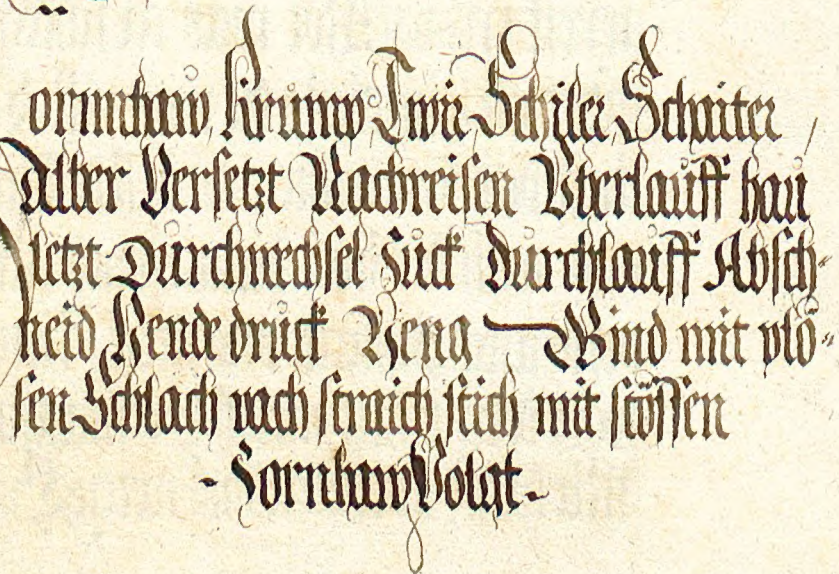 ornnhaw Krump Twir Schiler Schaiter
Alber Versetzt Nachreisen Vberlauff hau
setzt Durchwechsel Zuck durchlauff Absch-
neid Hende druck Heng Wind mit plö-
sen Schlach vach straich stich mit stössen
- Zornhaw Volgt -